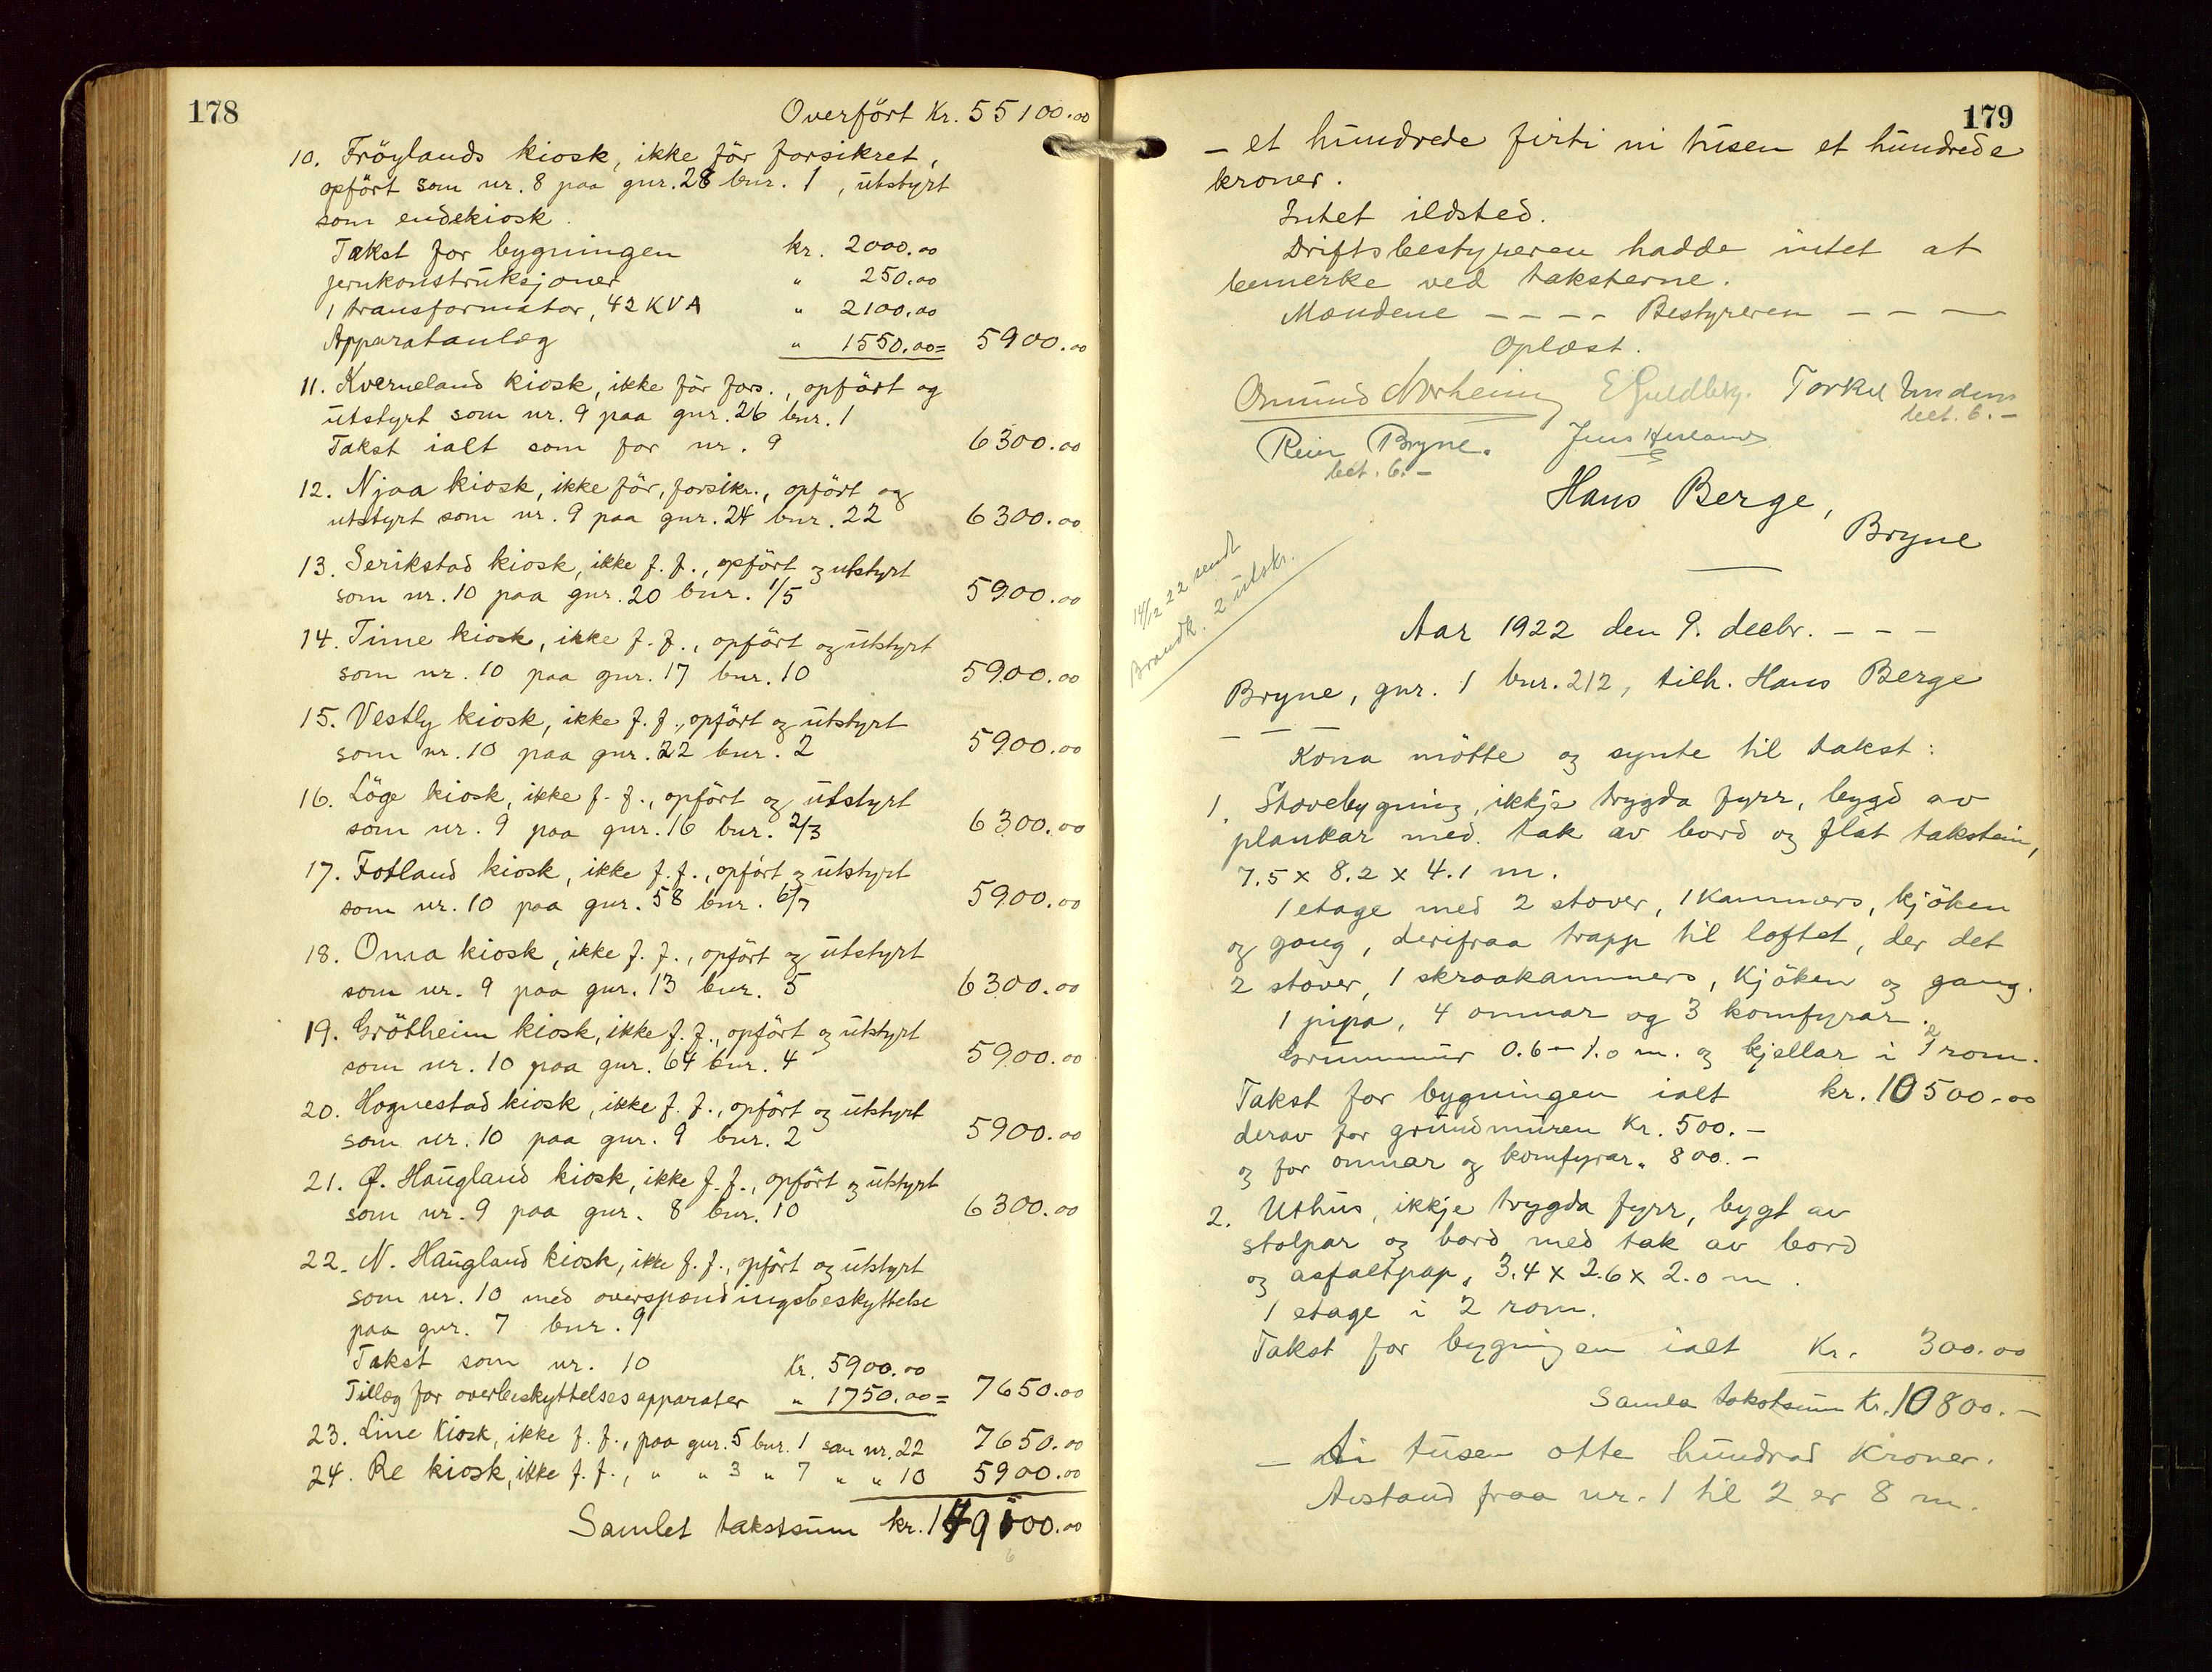 178
Overfört Kr. 55100.00
10. Fröylands kiosk, ikke för forsikret,
opfört som nr. 8 paa gnr. 28 bnr. 1, utstyrt
som endekiosk.
Takst for bygningen kr. 2000.00
jernkonstruksjoner " 250.00
1 transformator, 42 KVA " 2100.00
Apparatanlæg " 1550.00= 5900.00
11. Kverneland kiosk, ikke för fors., opfört og
utstyrt som nr. 9 paa gnr. 26 bnr. 1
Takst ialt som for nr. 9 6300.00
12. Njaa kiosk, ikke för, forsikr., opfört og
utstyrt som nr. 9 paa gnr. 24 bnr. 22 6300.00
13. Serikstad kiosk, ikke f. f., opfört og utstyrt
som nr. 10 paa gnr. 20 bnr. 1/5 5900.00
14. Time kiosk, ikke f. f., opfört og utstyrt
som nr. 10 paa gnr. 17 bnr. 10 5900.00
15. Vestly kiosk, ikke f. f., opfört og utstyrt
som nr. 10 paa gnr. 22 bnr. 2 5900.00
16. Löge kiosk, ikke f. f., opfört og utstyrt
som nr. 9 paa gnr. 16 bnr. 2/3 6300.00
17. Fotland kiosk, ikke f. f., opfört og utstyrt
som nr. 10 paa gnr. 58 bnr. 6/7 5900.00
18. Oma kiosk, ikke f. f., opfört og utstyrt
som nr. 9 paa gnr. 13 bnr. 5 6300.00
19. Grötheim kiosk, ikke f. f., opfört og utstyrt
som nr. 10 paa gnr. 64 bnr. 4 5900.00
20. Hognestad kiosk, ikke f. f., opfört og utstyrt
som nr. 10 paa gnr. 9 bnr. 2 5900.00
21. Ø. Haugland kiosk, ikke f. f., opfört og utstyrt
som nr. 9 paa gnr. 8 bnr. 10 6300.00
22. N. Haugland kiosk, ikke f. f., opfört og utstyrt
som nr. 10 med overspændingsbeskyttelse
paa gnr. 7 bnr. 9
Takst som nr. 10 Kr. 5900.00
Tillæg for overbeskyttelsesapparater " 1750.00= 7650.00
23. Line Kiosk, ikke f. f., paa gnr. 5 bnr. 1 som nr. 22 7650.00
24. Re kiosk, ikke f. f., " " 3 " 7 " " 10 5900.00
Samlet takstsum kr. 149100.00
179
– et hundrede firti ni tusen et hundrede
kroner.
Intet ildsted.
Driftsbestyreren hadde intet at
bemerke ved taksterne.
Mændene – – – – Bestyreren – – –
Oplæst.
Osmund Norheim E Guldbrg. Torkel
bet. 6.–
Reier Bryne. Jens
bet. 6.–
Hans Berge,
Bryne
14/12 22 sendt
Brandk. 2 utskr.
Aar 1922 den 9. decbr. – – –
Bryne, gnr. 1 bnr. 212, tilh. Hans Berge
– – –
Kona mötte og synte til takst:
1. Stovebygning, ikkje trygda fyrr, bygd av
plankar med tak av bord og flat takstein,
7.5 x 8.2 x 4.1 m.
1 etage med 2 stover, 1 kammers, kjöken
og gang, derifraa trapp til loftet, der det
2 stover, 1 skraakammers, Kjöken og gang.
1 pipa, 4 omnar og 3 komfyrar.
Grunnmur 0.6 – 1.0 m. og kjellar i 2 rom.
Takst for bygningen ialt kr. 10500.00
derav for grundmuren Kr. 500.–
og for omnar og komfyrar " 800.–
2. Uthus, ikkje trygda fyrr, bygt av
stolpar og bord med tak av bord
og asfaltpap, 3.4 x 2.6 x 2.0 m.
1 etage i 2 rom.
Takst for bygningen ialt Kr. 300.00
Samla takstsum Kr. 10800.–
– ti tusen otte hundrad Kroner.
Avstand fraa nr. 1 til 2 er 8 m.